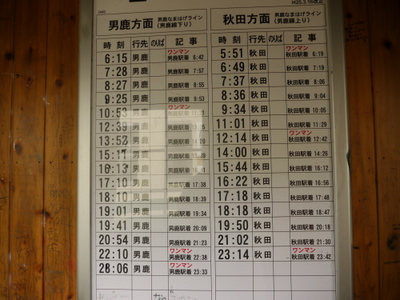 男鹿方面 男鹿なまはげライン (男鹿線下り)
時刻 行先 のりば 記事
6:15 男鹿 ワンマン 男鹿駅着 6:42
7:28 男鹿 男鹿駅着 7:57
8:27 男鹿 男鹿駅着 8:55
9:25 男鹿 男鹿駅着 9:53
男鹿
12:39 男鹿
13:52 男鹿
男鹿
男鹿
17:10 男鹿 男鹿駅着 17:38
18:10 男鹿 男鹿駅着 18:39
19:01 男鹿 男鹿駅着 19:34
19:41 男鹿 男鹿駅着 20:09
20:54 男鹿 男鹿駅着 21:23
22:10 男鹿 ワンマン 男鹿駅着 22:38
男鹿 ワンマン 男鹿駅着 23:33
秋田方面 男鹿なまはげライン (男鹿線上り)
時刻 行先 のりば 記事
5:51 秋田 ワンマン 秋田駅着 6:19
6:49 秋田 秋田駅着 7:19
7:37 秋田 秋田駅着 8:06
8:36 秋田 秋田駅着 9:04
9:34 秋田 秋田駅着 10:05
11:01 秋田 秋田駅着 11:29
12:14 秋田 ワンマン 秋田駅着 12:42
14:00 秋田 秋田駅着 14:26
15:44 秋田 秋田駅着 16:12
16:22 秋田 秋田駅着 16:56
17:18 秋田 秋田駅着 17:48
18:18 秋田 秋田駅着 18:47
19:50 秋田 秋田駅着 20:18
21:02 秋田 秋田駅着 21:30
23:14 秋田 ワンマン 秋田駅着 23:42